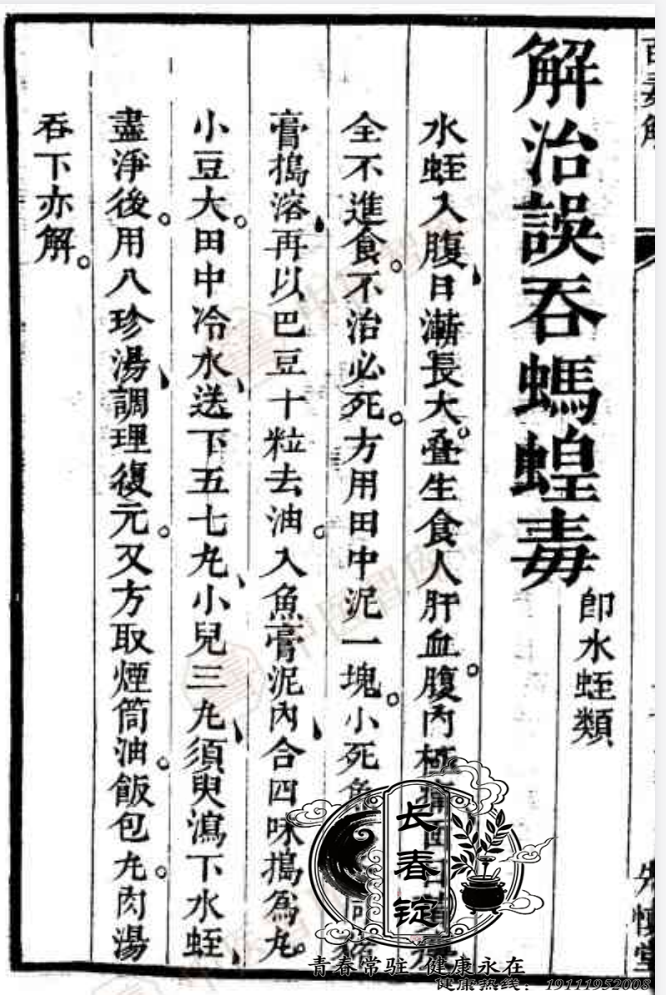 解治誤吞螞蝗毒 即水蛭類
水蛭入腹、日漸長大。叠生食人肝血。腹內極痛
全不進食。不治必死。方用田中泥一塊。小死魚
膏搗溶、再以巴豆十粒去油。入魚膏泥內、合四味搗為丸。
小豆大。田中冷水、送下五七丸、小兒三丸、須臾瀉下水蛭、
盡淨後。用八珍湯、調理復元。又方取煙筒油。飯包丸。肉湯
吞下亦解。
长春锭
青春常驻 健康永在
健康热线：19111952008